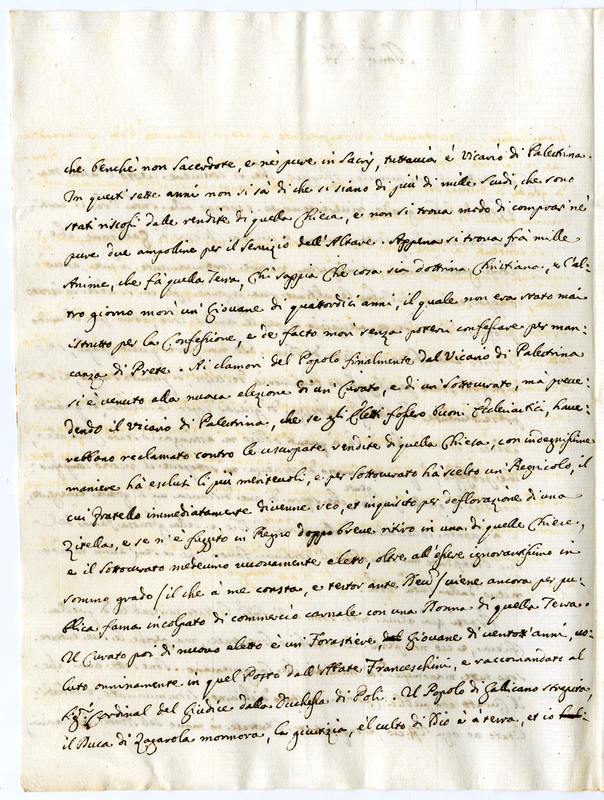 che benchè non Sacerdote, e nè pure in Sacris, tuttavia è Vicario di Palestrina.
In questi sette anni non si sà di che si siano di più di mille Scudi, che sono
stati riscossi dalle rendite di quella Chiesa, e non si trova modo di comprar nè
pure due ampolline per il servizio dell'Altare. Appena si trova frà mille
Anime, che fà quella Terra, chi sappia che cosa sia dottrina Christiana, e l'al-
tro giorno morì un Giovane di quattordici anni, il quale non era stato mai
istrutto per la Confessione, e de facto morì senza potersi confessare per man-
canza di Prete. Ai clamori del Popolo finalmente dal Vicario di Palestrina
si è venuto alla nuova elezione di un Curato, e di un Sottocurato, mà preve-
dendo il Vicario di Palestrina, che se gli Eletti fossero buoni Ecclesiastici, have-
rebbono reclamato contro le usurpate rendite di quella Chiesa, con indegnissime
maniere hà esclusi li più meritevoli, e per Sottocurato hà scelto un Regnicolo, il
cui fratello immediatamente divenne reo, et inquisito per deflorazione di una
Zitella, e se n'è fuggito in Regno doppo breve ritiro in una di quelle Chiese,
e il Sottocurato medesimo nuovamente eletto, oltre all'essere ignorantissimo in
sommo grado / il che à me consta, e testor ante Deum / viene ancora per pu-
blica fama incolpato di commercio carnale con una Donna di quella Terra.
Il Curato poi di nuovo eletto è un Forastiere, Giovane di ventott'anni, vo-
luto onninamente in quel Posto dall'Abate Franceschini, e raccomandato al
Sig.r Cardinal del Giudice dalla Duchessa di Poli. Il Popolo di Gallicano strepita,
il Duca di Zagarola mormora, la giustizia, e'l culto di Dio è à terra, et io